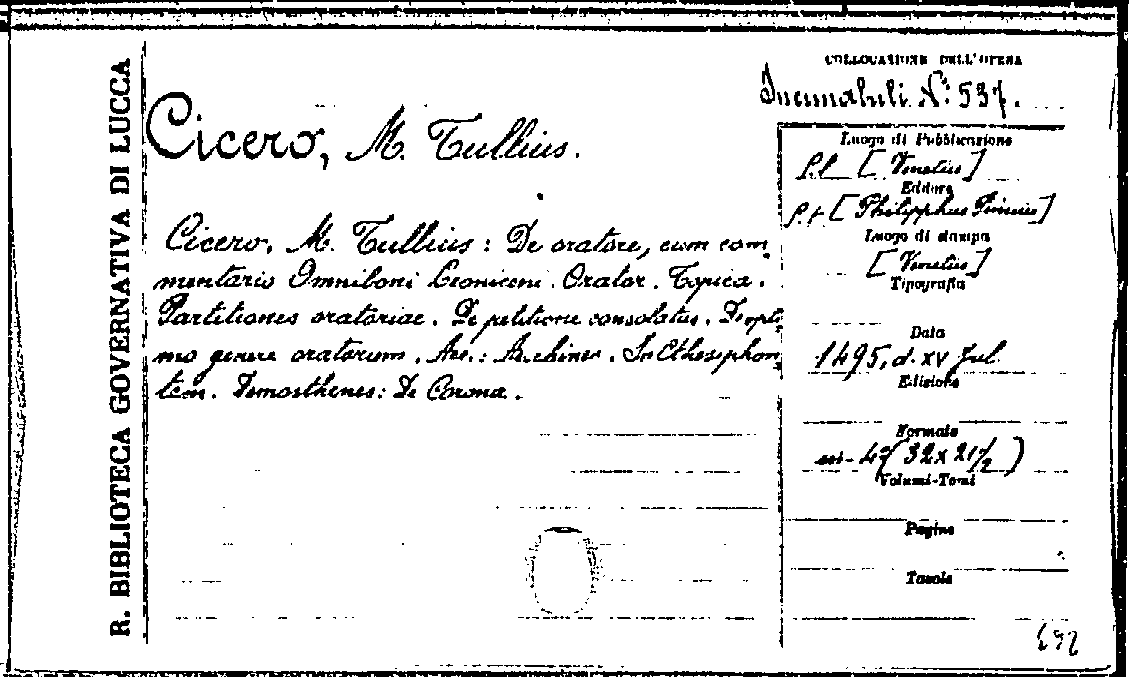 R. BIBLIOTECA GOVERNATIVA DI LUCCA
COLLOCAZIONE DELL'OPERA
Incunabuli N.° 537.
Cicero, M. Tullius.
Cicero, M. Tullius: De oratore, cum com
mentario Omniboni Leoniceni. Orator. Topica.
Partitiones oratoriae. De petitione consolatus. De opti
mo genere oratorum. Acc.: Aeschines. In Ethesiphon
tem. Demosthenes: De Corona.
Luogo di Pubblicazione
[Venetiis]
Editore
[Philipphus Pincius]
Luogo di stampa
[Venetiis]
Tipografia
Data
1495, d. XV Jul.
Edizione
Formato
in-4° (32 x 21 1/2)
Volumi-Tomi
Pagine
Tavole